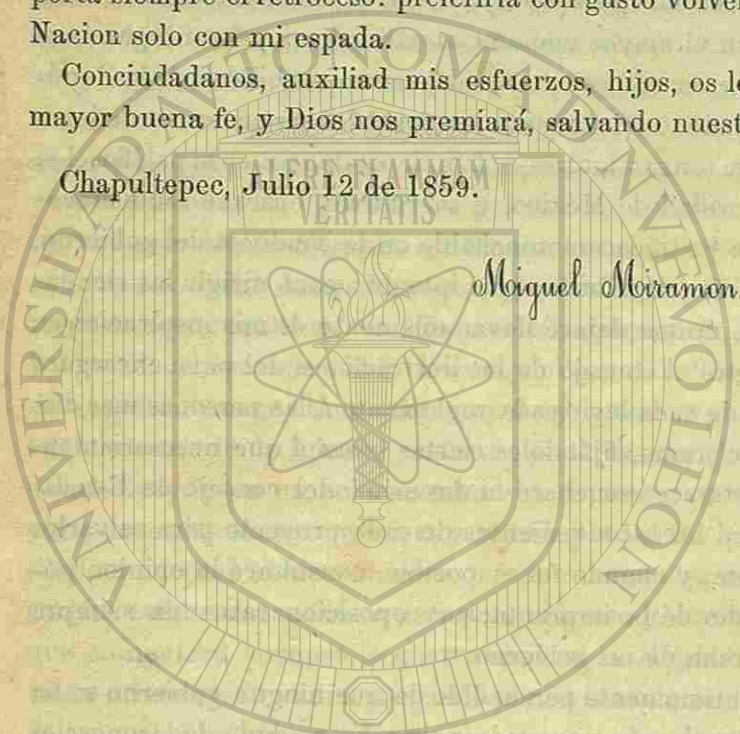 porta siempre el retroceso: preferiria con gusto volver
Nacion solo con mi espada.
Conciudadanos, auxiliad mis esfuerzos, hijos, os
mayor buena fe, y Dios nos premiará, salvando
Chapultepec, Julio 12 de 1859.
Miguel Miramon.
UNIVERSIDAD AUTONOMA D NVEVO LEON
ALERE FLAMMAM
VERITATIS